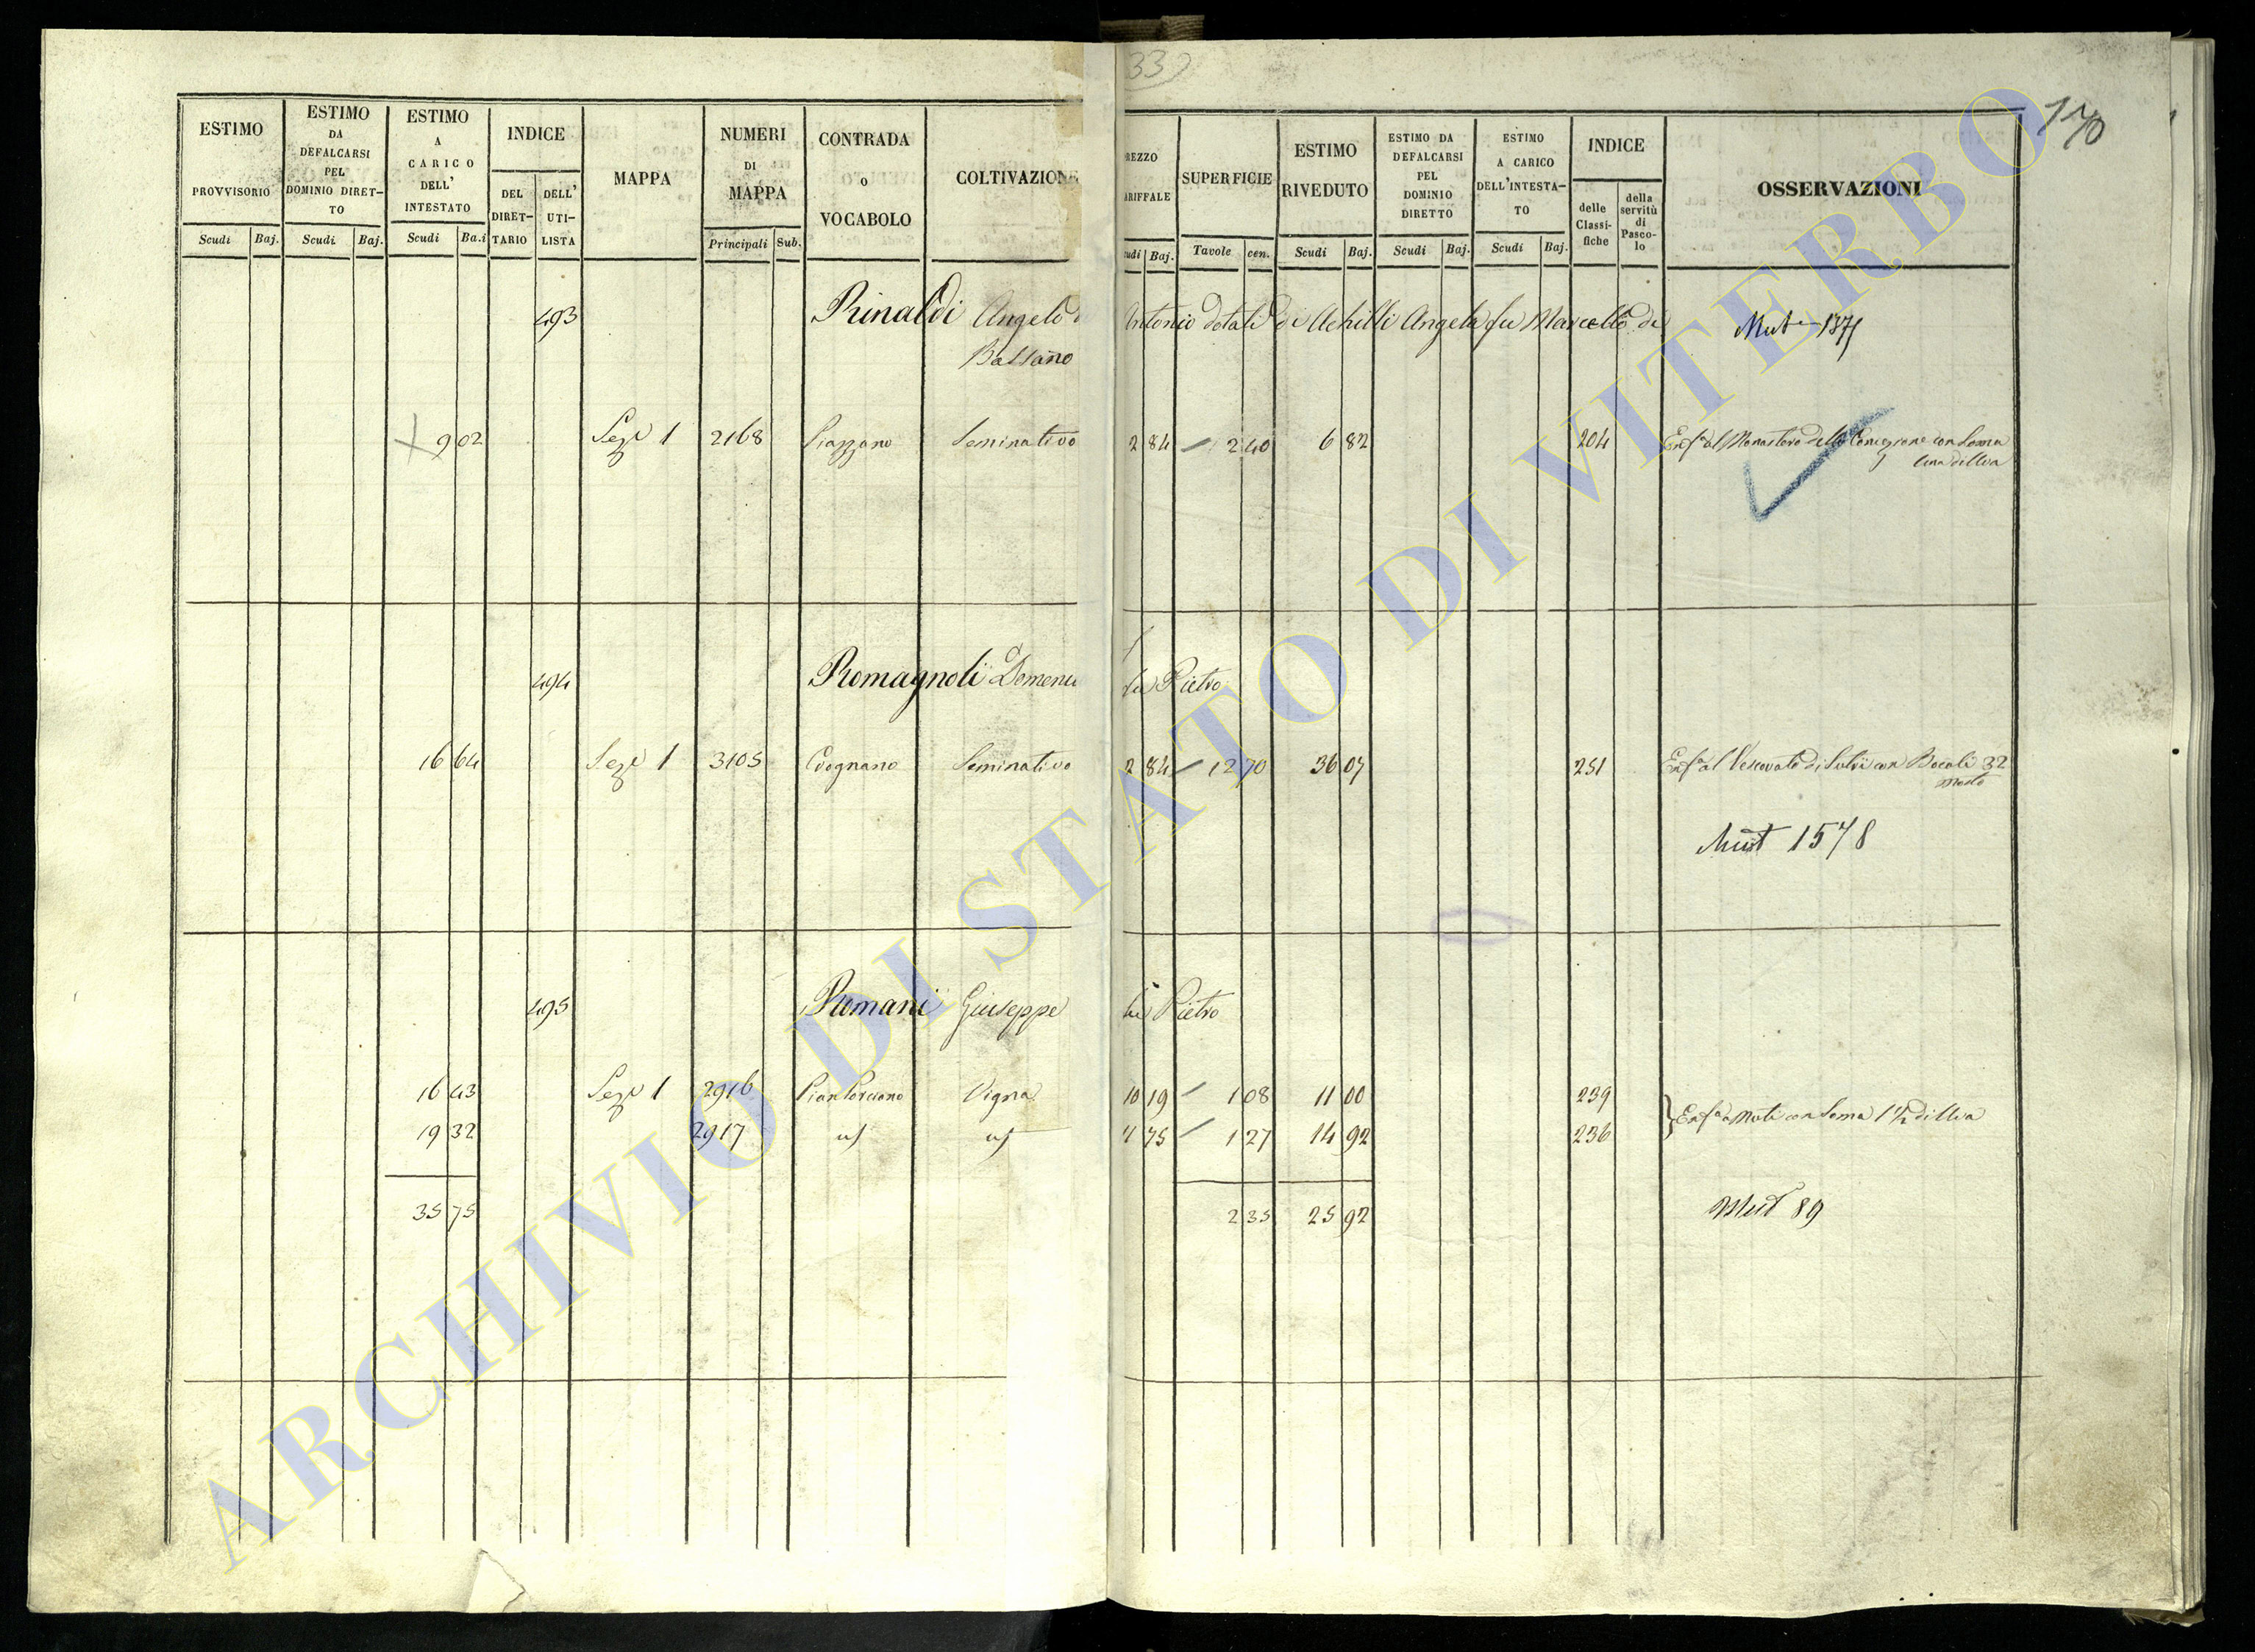 33)
170
ESTIMO PROVVISORIO
ESTIMO DA DEFALCARSI PEL DOMINIO DIRET-TO
ESTIMO A CARICO DELL' INTESTATO
INDICE
DEL DIRET-TARIO
DELL' UTI-LISTA
MAPPA
NUMERI DI MAPPA
CONTRADA O VOCABOLO
COLTIVAZIONE
Scudi Baj. Scudi Baj. Scudi Ba.i Principali Sub.
REZZO ARIFFALE
SUPERFICIE
ESTIMO RIVEDUTO
ESTIMO DA DEFALCARSI PEL DOMINIO DIRETTO
ESTIMO A CARICO DELL'INTESTA-TO
INDICE
delle Classi-fiche
della servitù di Pasco-lo
OSSERVAZIONI
udi Baj. Tavole cen. Scudi Baj. Scudi Baj. Scudi Baj.
493 Rinaldi Angelo Antonio dotali di Achilli Angela fu Marcello di
Bassano
Mut 1371
902 Sez 1 2168 Piazzano Seminativo 2 84 2 40 6 82 204 Enf al Monastero della Concezione con Soma
una d'Uva
494 Romagnoli Domeni fu Pietro
16 64 Sez 1 3105 Cognano Seminativo 2 84 12 70 36 07 251 Enf al Vescovato di Sutri con Bocali 32
mosto
Mut 1578
495 Romani Giuseppe fu Pietro
16 43 Sez 1 2916 Vigna 10 19 1 08 11 00 239
19 32 2917 " " 75 1 27 14 92 236
Enf a Muti con Soma 1 1/2 d'Uva
35 75 2 35 25 92
Mut 89
ARCHIVIO DI STATO DI VITERBO